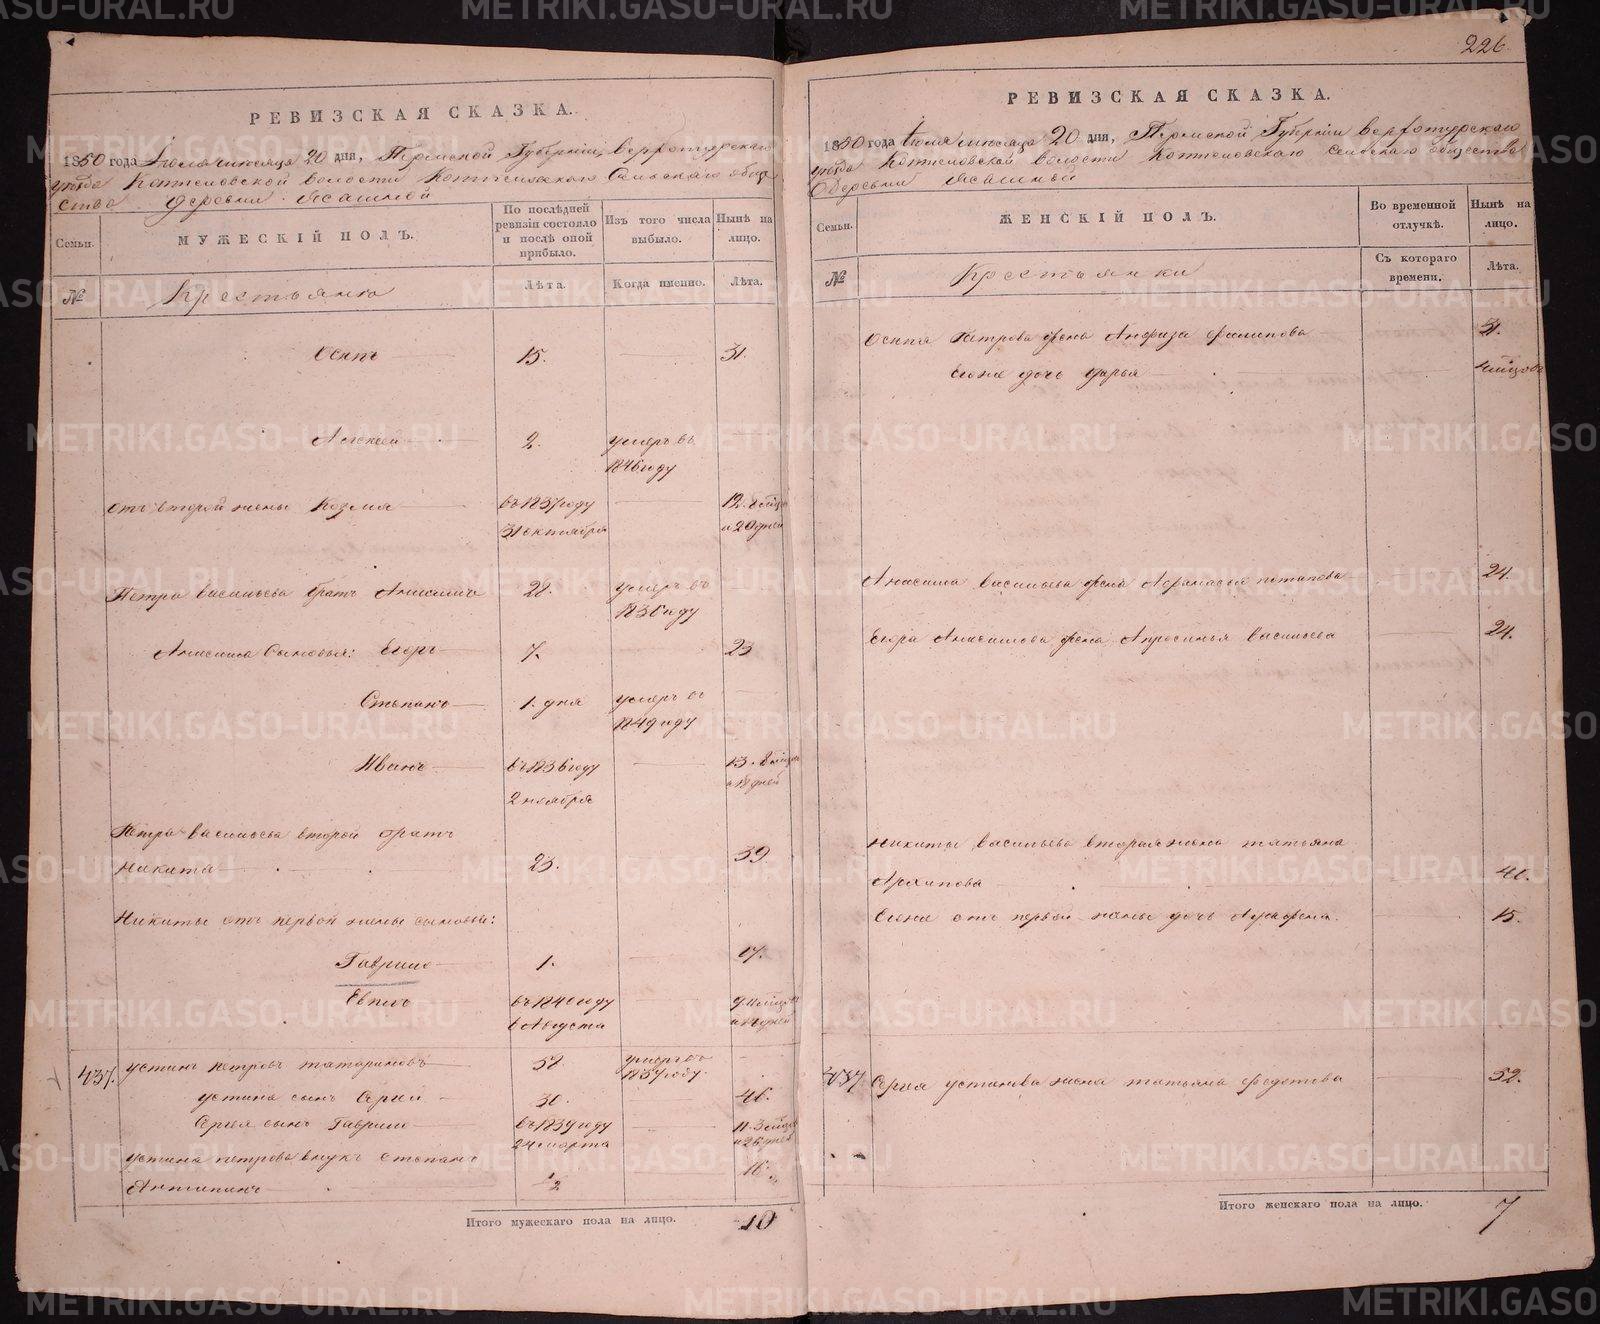 226
РЕВИЗСКАЯ СКАЗКА.
1850 года Июля месяца 20 дня, Пермской Губернии, Верхотурскаго
уезда Коптеловской волости Коптеловскаго Сельскаго обще
ства деревни Ясашной
Семьи.
МУЖЕСКІЙ ПОЛЪ.
По послѣдней ревизіи состояло и послѣ оной прибыло.
Изъ того числа выбыло.
Нынѣ на лицо.
№
Крестьяне
Лѣта.
Когда именно.
Лѣта.
Осипъ 15. 31.
Алексей 2. умеръ въ
1846 году
отъ второй жены Козма въ 1837 году 12. 8 месяц
31 октября и 20 дней
Петра Васильева братъ Анисимъ 28. умеръ въ
1836 году
Анисима сыновья: Егоръ 7. 23
Степанъ 1. дня умеръ въ
1849 году
Иванъ въ 1836 году 13. 8 месяц
2 ноября и 18 дней
Петра Васильева второй братъ
Никита 23. 39
Никиты отъ первой жены сыновья:
Гаврило 1. 17.
Евпло въ 1840 году
6 Августа и 14 дней
437. Устинъ Петровъ Татариновъ 58. умеръ въ
1837 году.
Устина сынъ Сергей 30. 46.
Сергея сынъ Гаврило въ 1839 году 11. 3 месяц
24 марта и 26 дней
Устина Петрова внукъ Степанъ
Антипинъ 1/2 16 1/2
Итого мужескаго пола на лицо. 10
РЕВИЗСКАЯ СКАЗКА.
1850 года Июля месяца 20 дня, Пермской Губернии Верхотурскаго
уезда Коптеловской волости Коптеловскаго сельскаго общества
деревни Ясашной
Семьи.
ЖЕНСКІЙ ПОЛЪ.
Во временной отлучкѣ.
Нынѣ на лицо.
№
Крестьянки
Съ котораго времени.
Лѣта.
Осипа Петрова жена Анфиза Филипова 31.
Его же дочь Дарья
Анисима Васильева жена Афанасья Потапова 24.
Егора Анисимова жена Апросинья Васильева 24.
Никиты Васильева вторая жена Татьяна
Архипова 40.
Его же отъ первой жены дочь 15.
437 Сергея Устинова жена Татьяна Федотова 52.
Итого женскаго пола на лицо. 7
METRIKI.GASO-URAL.RU